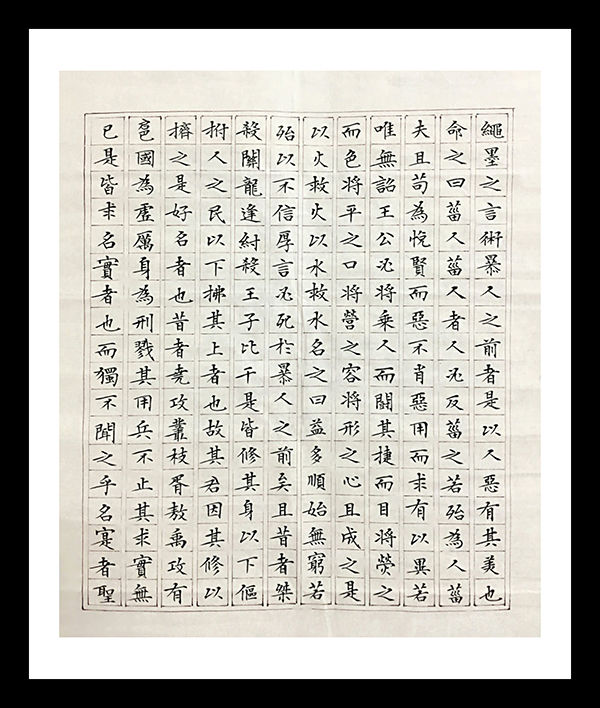 繩墨之言術暴人之前者是以人惡有其美也
命之曰菑人菑人者人必反菑之若殆為人菑
夫且苟為悅賢而惡不肖惡用而求有以異若
唯無詔王公必將乘人而鬭其捷而目將熒之
而色將平之口將營之容將形之心且成之是
以火救火以水救水名之曰益多順始無窮若
殆以不信厚言必死於暴人之前矣且昔者桀
殺關龍逢紂殺王子比干是皆修其身以下傴
拊人之民以下拂其上者也故其君因其修以
擠之是好名者也昔者堯攻叢枝胥敖禹攻有
扈國為虛厲身為刑戮其用兵不止其求實無
已是皆求名實者也而獨不聞之乎名實者聖